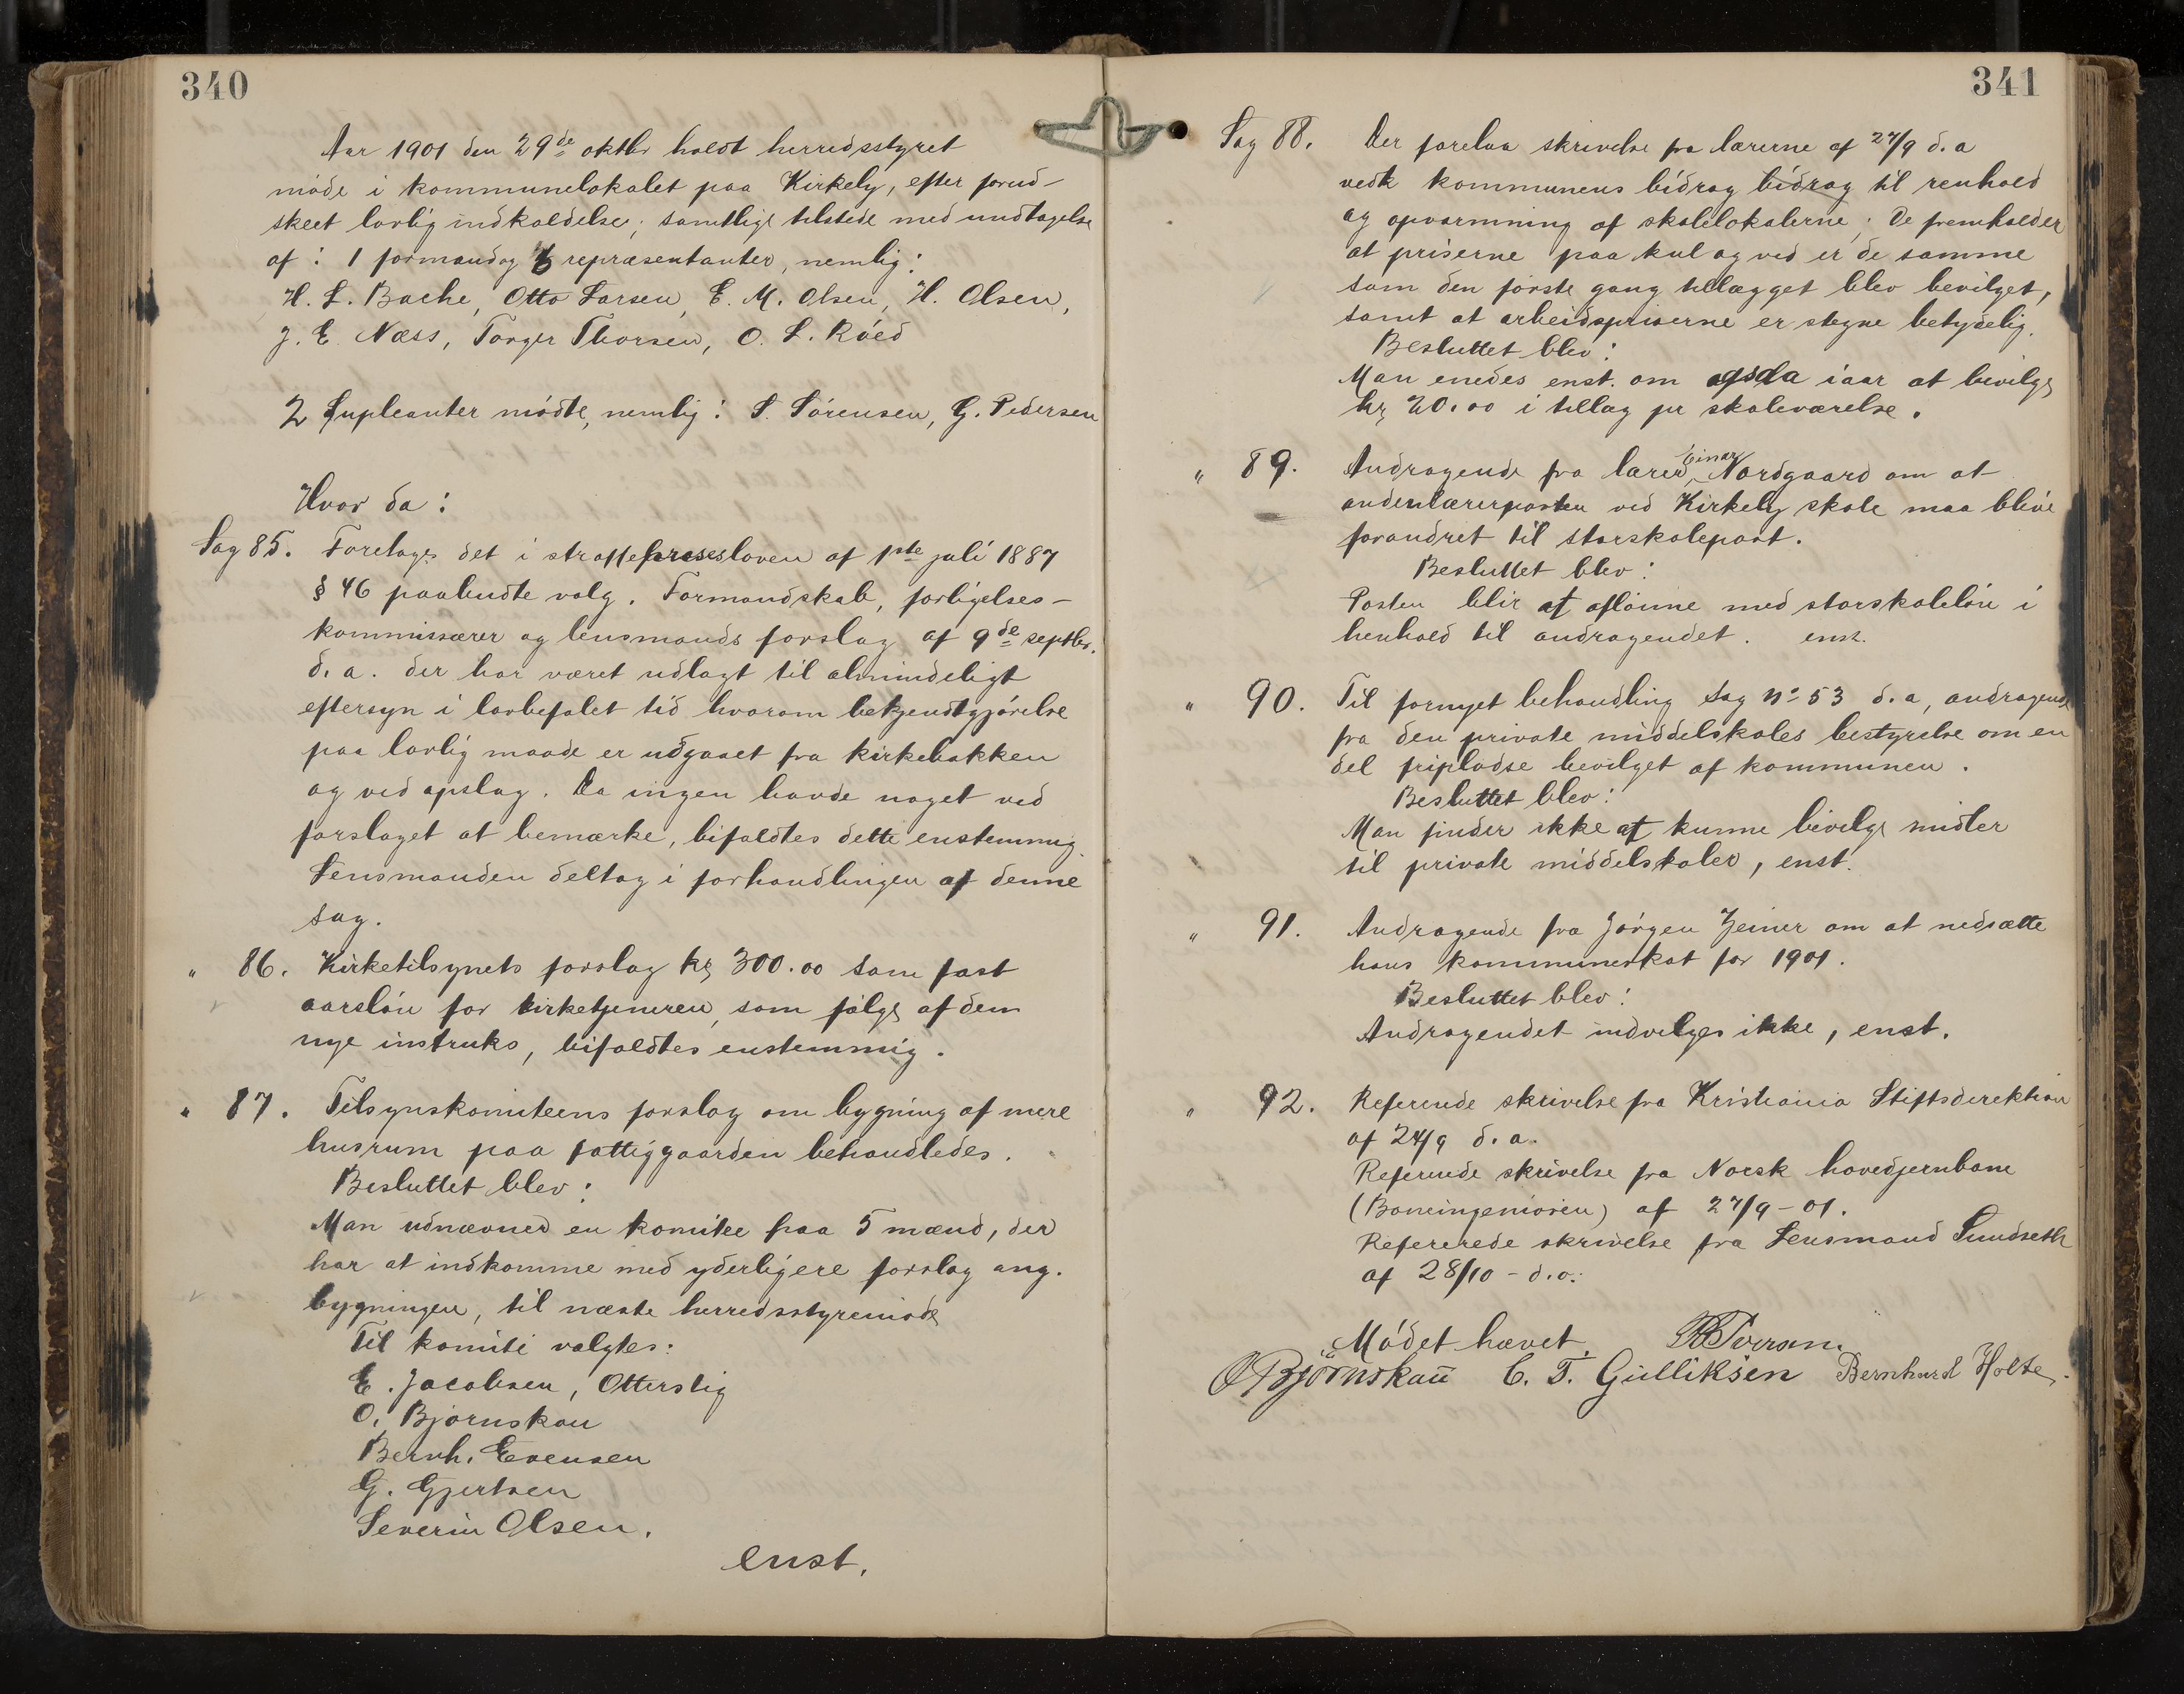 340
Aar 1901 den 29de oktbr holdt herredsstyret
møde i kommunelokalet paa Kirkely, efter forud-
skeet lovlig indkaldelse; samtlige tilstede med undtagelse
af: 1 formand og 6 repræsentanter, nemlig:
H. L. Bache, Otto Larsen, E. M. Olsen, H. Olsen,
J. E. Næss, Torger Thorsen, O. L. Röed
2 Supleanter mødte, nemlig: S. Sörensen, G. Pedersen
Hvor da:
Sag 85. Foretages det i straffeprosesloven af 1ste juli 1887
§ 46 paabudte valg. Formandskab, forligelses-
kommissærer og lensmands forslag af 9de septbr.
d. a. der har været udlagt til almindeligt
eftersyn i lovbefalet tid hvorom bekjendtgjörelse
paa lovlig maade er udgaaet fra kirkebakken
og ved opslag. Da ingen havde noget ved
forslaget at bemærke, bifaldtes dette enstemmig.
Lensmanden deltog i forhandlingen af denne
sag.
" 86. Kirketilsynets forslag kr 300.00 som fast
aarslön for kirketjeneren, som fölge af den
nye instruks, bifaldtes enstemmig.
" 87. Tilsynskomiteens forslag om bygning af mere
husrum paa fattiggaarden behandledes.
Besluttet blev:
Man udnævner en komitee paa 5 mænd, der
har at indkomme med yderligere forslag ang.
bygningen, til næste herredsstyremöde
Til komité valgtes:
E. Jacobsen, Otterstig
O. Björnskau
Bernh. Evensen
G. Gjertsen
Severin Olsen.
enst.
341
Sag 88. Der forelaa skrivelse fra lærerne af 27/9 d. a
vedk kommunens bidrag bidrag til renhold
og opvarmning af skolelokalerne; De fremholder
at priserne paa kul og ved er de samme
som den förste gang tillægget blev bevilget,
samt at arbeidspriserne er stegne betydelig.
Besluttet blev:
Man enedes enst. om ogsaa iaar at bevilge
kr 20.00 i tillæg pr skoleværelse.
" 89. Andragende fra lærer Einar Nordgaard om at
andenlærerposten ved Kirkely skole maa blive
forandret til storskolepost.
Besluttet blev:
Posten blir at aflönne med storskolelön i
henhold til andragendet. enst.
" 90. Til fornyet behandling sag No 53 d. a, andragende
fra den private middelskoles bestyrelse om en
del fripladse bevilget af kommunen.
Besluttet blev:
Man finder ikke at kunne bevilge midler
til private middelskoler, enst.
" 91. Andragende fra Jörgen Zeiner om at nedsætte
hans kommuneskat for 1901.
Besluttet blev:
Andragendet indvilges ikke, enst.
" 92. Referede skrivelse fra Kristiania Stiftsdirektion
af 24/9 d. a.
Referede skrivelse fra Norsk hovedjernbane
(Baneingeniören) af 27/9 - 01.
Refererede skrivelse fra Lensmand Sundseth
af 28/10 - d. a.
Mödet hævet.
O Björnskau C. T. Gulliksen Bernhard Holte.